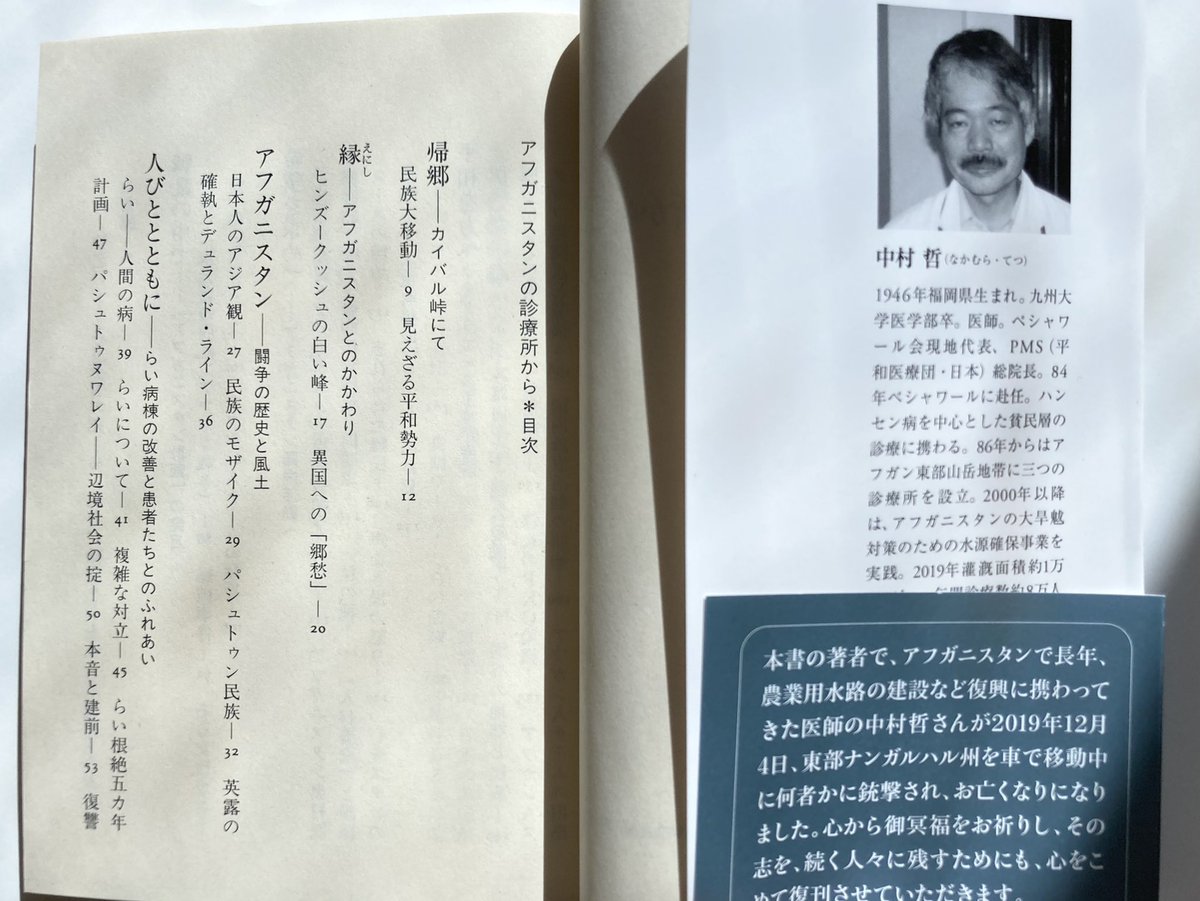 アフガニスタンの診療所から＊目次
帰郷――カイバル峠にて
民族大移動―9　見えざる平和勢力―12
縁――アフガニスタンとのかかわり
えにし
ヒンズークッシュの白い峰―17　異国への「郷愁」―20
アフガニスタン――闘争の歴史と風土
日本人のアジア観―27　民族のモザイク―29　パシュトゥン民族―32　英露の
確執とデュランド・ライン―36
人びととともに――らい病棟の改善と患者たちとのふれあい
らい――人間の病―39　らいについて―41　複雑な対立―45　らい根絶五カ年
計画―47　パシュトゥヌワレイ――辺境社会の掟―50　本音と建前―53　復讐
中村 哲（なかむら・てつ）
1946年福岡県生まれ。九州大
学医学部卒。医師。ペシャワ
ール会現地代表、PMS（平
和医療団・日本）総院長。84
年ペシャワールに赴任。ハン
セン病を中心とした貧民層の
診療に携わる。86年からはア
フガン東部山岳地帯に三つの
診療所を設立。2000年以降
は、アフガニスタンの大旱魃
対策のための水源確保事業を
実践。2019年灌漑面積約1万
年間診療数約8万人
本書の著者で、アフガニスタンで長年、
農業用水路の建設など復興に携わって
きた医師の中村哲さんが2019年12月
4日、東部ナンガルハル州を車で移動中
に何者かに銃撃され、お亡くなりになり
ました。心から御冥福をお祈りし、その
志を、続く人々に残すためにも、心をこ
めて復刊させていただきます。